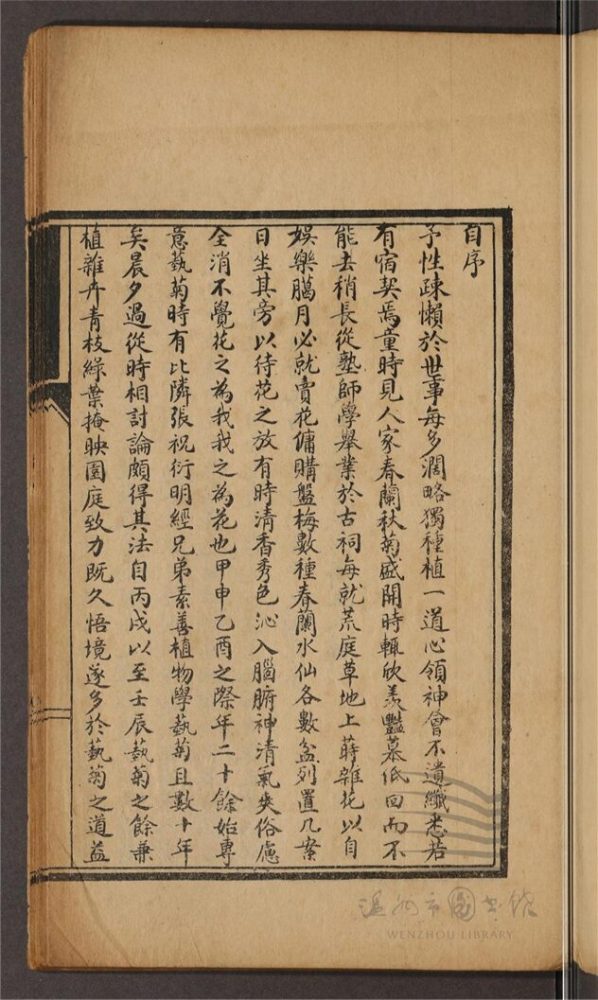 自序
予性疎懶於世事每多濶略獨種植一道心領神會不遺纖悉若
有宿契焉童時見人家春蘭秋菊盛開時輒欣羨豔慕低回而不
能去稍長從塾師學舉業於古祠每就荒庭草地上蒔雜花以自
娛樂臈月必就賣花傭購盤梅數種春蘭水仙各數盆列置几案
日坐其旁以待花之放有時清香秀色沁入腦腑神清氣爽俗慮
全消不覺花之為我我之為花也甲申乙酉之際年二十餘始專
意藝菊時有比隣張祝衍明經兄弟素善植物學藝菊且數十年
矣晨夕過從時相討論頗得其法自丙戌以至壬辰藝菊之餘兼
植雜卉青枝綠葉掩映園庭致力既久悟境遂多於藝菊之道益
温州市圖书馆
WENZHOU LIBRARY